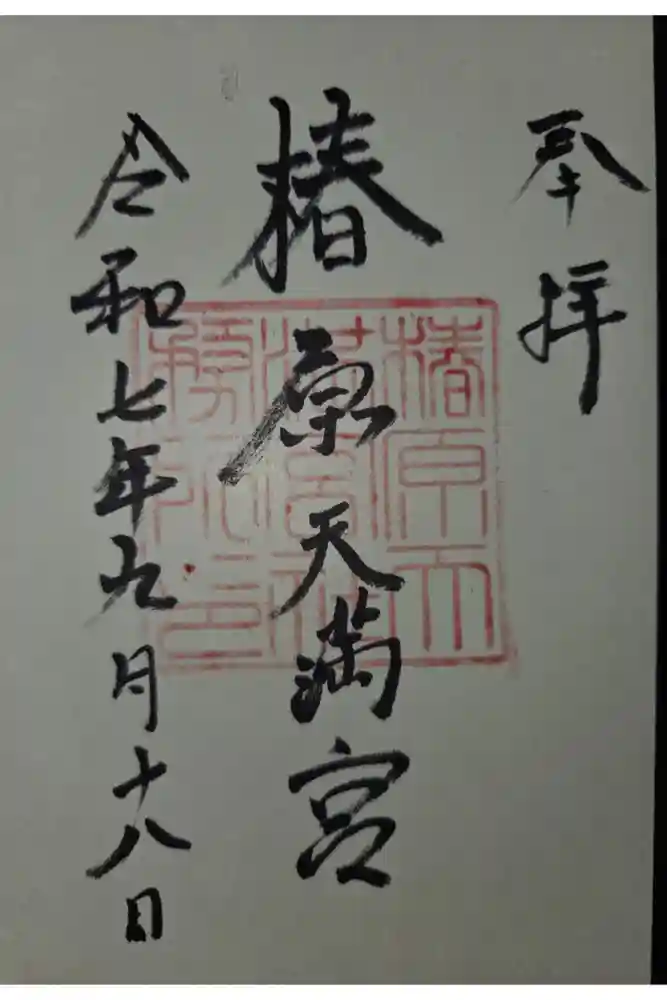 奉拝
椿原天満宮
椿原天
満宮社
務所印
令和七年九月十八日